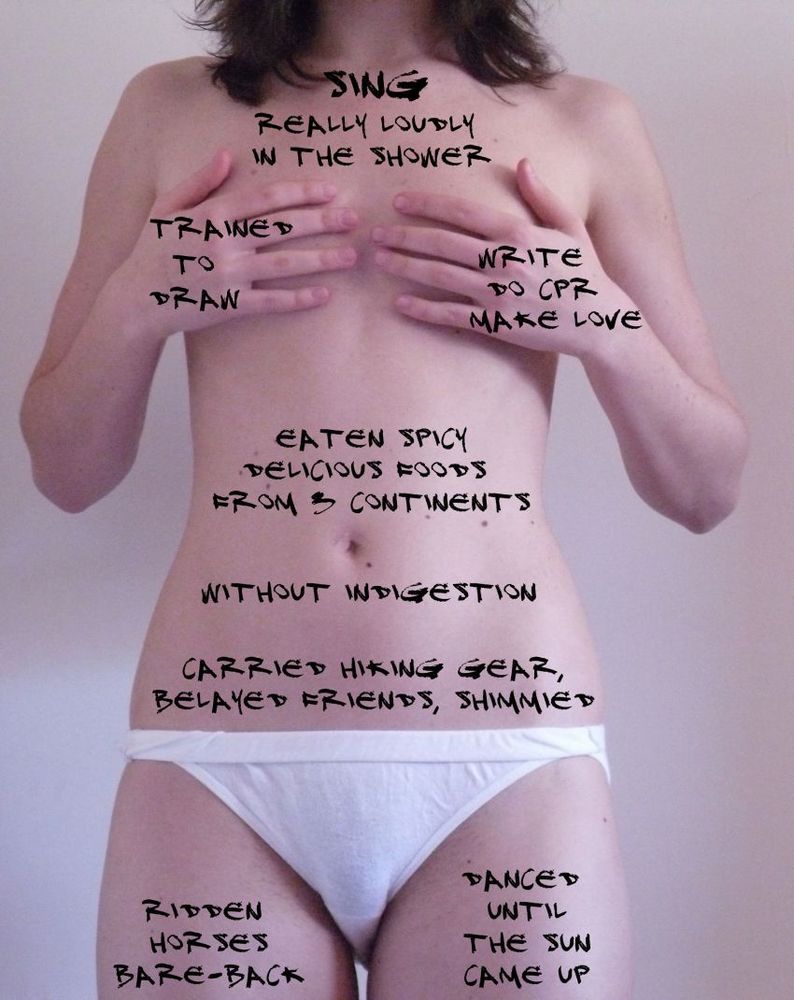 SING
REALLY LOUDLY
IN THE SHOWER
TRAINED
TO
DRAW
WRITE
DO CPR
MAKE LOVE
EATEN SPICY
DELICIOUS FOODS
FROM 3 CONTINENTS
WITHOUT INDIGESTION
CARRIED HIKING GEAR,
BELAYED FRIENDS, SHIMMIED
RIDDEN
HORSES
BARE-BACK
DANCED
UNTIL
THE SUN
CAME UP